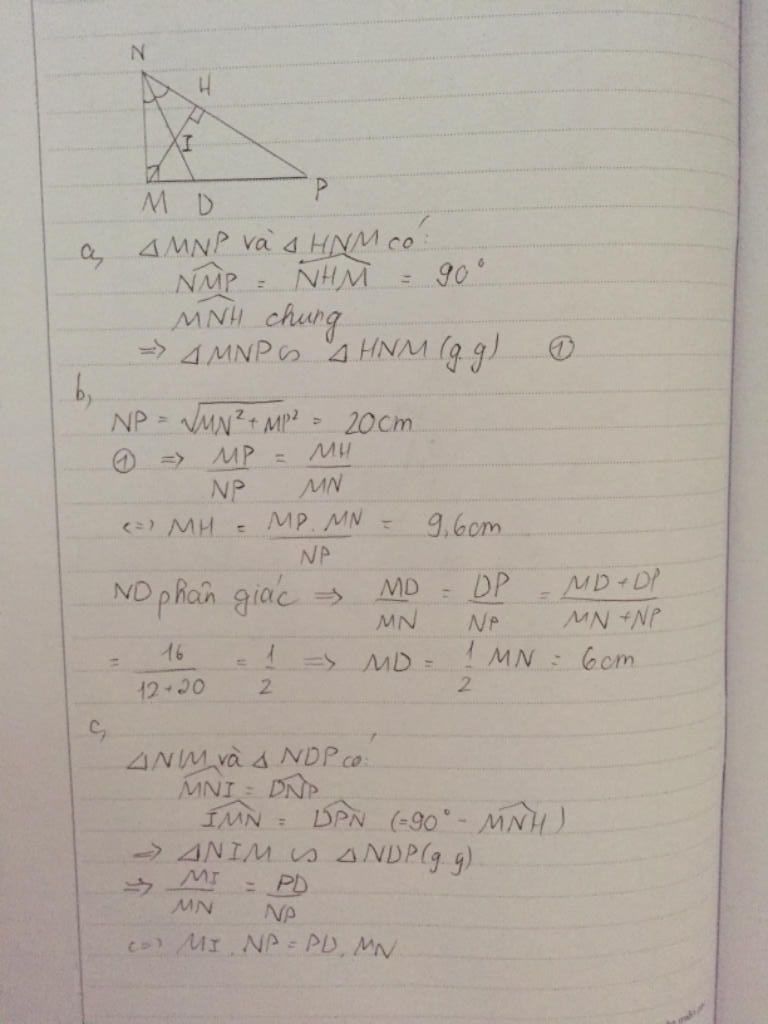 N
H
I
M D P
a, △MNP và △HNM có:
$\widehat{NMP}$ = $\widehat{NHM}$ = 90°
$\widehat{MNH}$ chung
=> △MNP ∽ △HNM (g.g) ①
b,
NP = $\sqrt{MN^2+MP^2}$ = 20cm
① => $\frac{MP}{NP}$ = $\frac{MH}{MN}$
<=> MH = $\frac{MP.MN}{NP}$ = 9,6cm
ND phân giác => $\frac{MD}{MN}$ = $\frac{DP}{NP}$ = $\frac{MD+DP}{MN+NP}$
= $\frac{16}{12+20}$ = $\frac{1}{2}$ => MD = $\frac{1}{2}$ MN = 6cm
c,
△NIM và △NDP có:
$\widehat{MNI}$ = $\widehat{DNP}$
$\widehat{IMN}$ = $\widehat{DPN}$ (=90° - $\widehat{MNH}$)
=> △NIM ∽ △NDP (g.g)
=> $\frac{MI}{MN}$ = $\frac{PD}{NP}$
<=> MI . NP = PD . MN